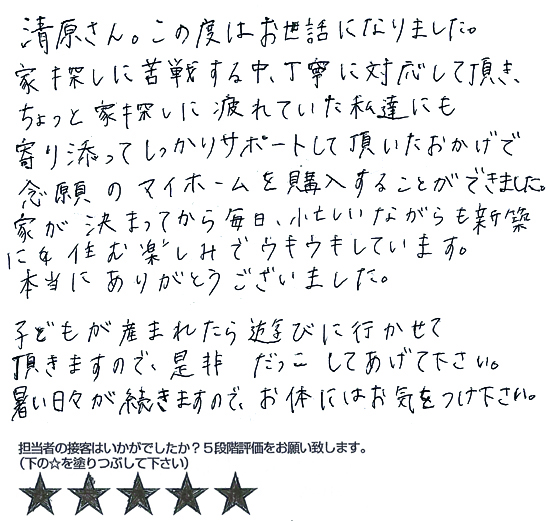 清原さん。この度はお世話になりました。
家探しに苦戦する中、丁寧に対応して頂き、
ちょっと家探しに疲れていた私達にも
寄り添ってしっかりサポートして頂いたおかげで
念願のマイホームを購入することができました。
家が決まってから毎日、忙しいながらも新築
に住む楽しみでウキウキしています。
本当にありがとうございました。
子どもが産まれたら遊びに行かせて
頂きますので、是非 だっこしてあげて下さい。
暑い日々が続きますので、お体にはお気をつけ下さい。
担当者の接客はいかがでしたか?5段階評価をお願い致します。
(下の☆を塗りつぶして下さい)
★★★★★